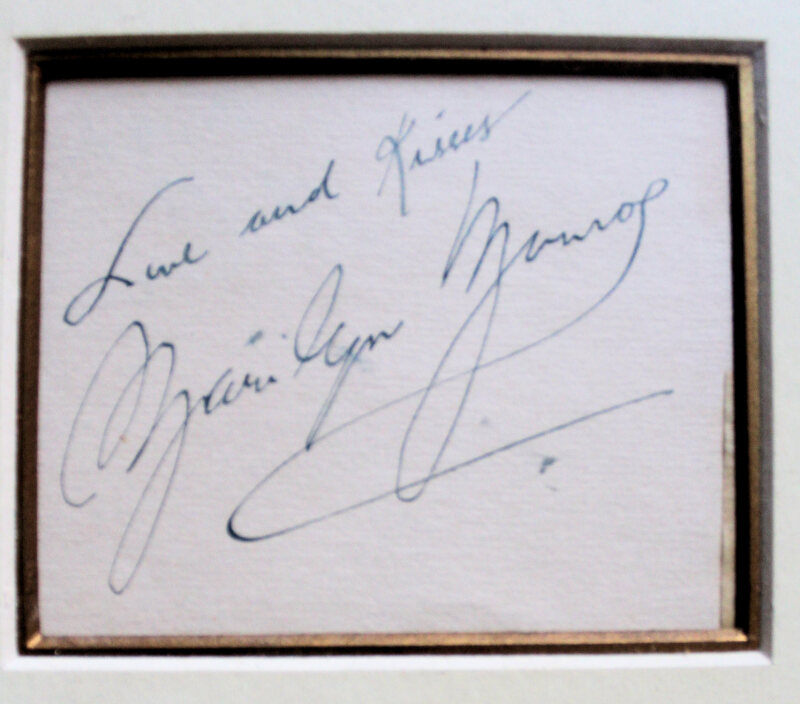 Love and Kisses
Marilyn Monroe